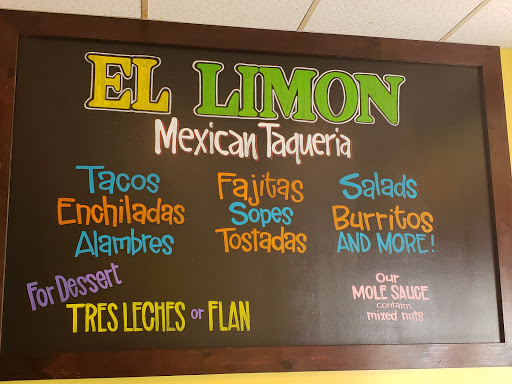 EL LIMON
Mexican Taqueria
Tacos Fajitas Salads
Enchiladas Sopes Burritos
Alambres Tostadas AND MORE!
For Dessert
TRES LECHES or FLAN
Our
MOLE SAUCE
contains
mixed nuts